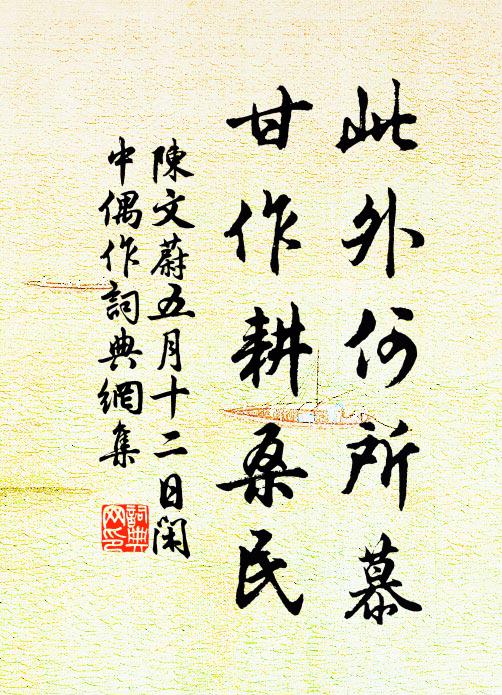 此外何所慕
甘作耕桑民
陳文蔚五月十二日閑
中偶作詞典網集
詞典
网印